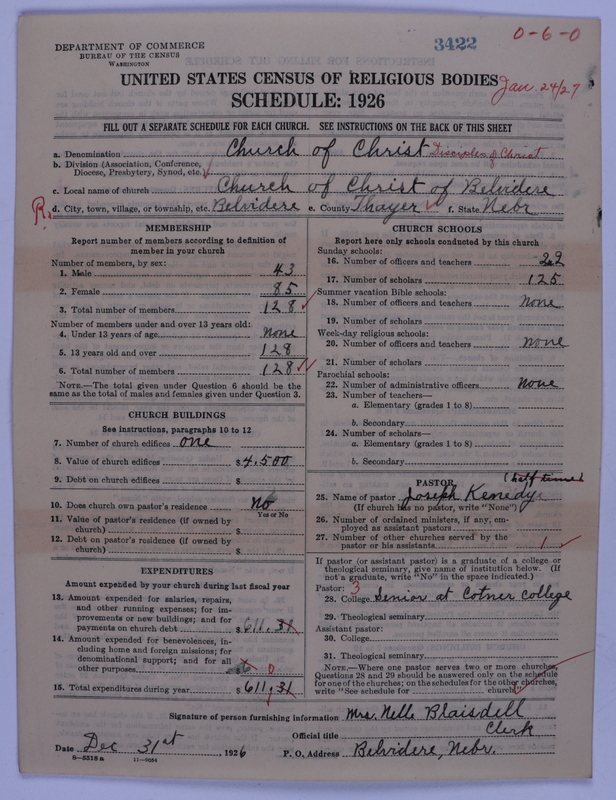 DEPARTMENT OF COMMERCE
BUREAU OF THE CENSUS
WASHINGTON
3422
0-6-0
UNITED STATES CENSUS OF RELIGIOUS BODIES
Jan. 24/27
SCHEDULE: 1926
FILL OUT A SEPARATE SCHEDULE FOR EACH CHURCH. SEE INSTRUCTIONS ON THE BACK OF THIS SHEET
a. Denomination Church of Christ Disciples of Christ
b. Division (Association, Conference, Diocese, Presbytery, Synod, etc.)
c. Local name of church Church of Christ of Belvidere
R. d. City, town, village, or township, etc. Belvidere e. County Thayer f. State Nebr
MEMBERSHIP
Report number of members according to definition of
member in your church
Number of members, by sex:
1. Male 43
2. Female 85
3. Total number of members 128
Number of members under and over 13 years old:
4. Under 13 years of age None
5. 13 years old and over 128
6. Total number of members 128
NOTE.—The total given under Question 6 should be
same as the total of males and females given under Question 3.
CHURCH BUILDINGS
See instructions, paragraphs 10 to 12
7. Number of church edifices one
8. Value of church edifices $4,500
9. Debt on church edifices $
10. Does church own pastor's residence No
Yes or No
11. Value of pastor's residence (if owned by
church) $
12. Debt on pastor's residence (if owned by
church) $
EXPENDITURES
Amount expended by your church during last fiscal year
13. Amount expended for salaries, repairs,
and other running expenses; for im-
provements or new buildings; and for
payments on church debt $611,31
14. Amount expended for benevolences, in-
cluding home and foreign missions; for
denominational support; and for all
other purposes
15. Total expenditures during year $611,31
CHURCH SCHOOLS
Report here only schools conducted by this church
Sunday schools:
16. Number of officers and teachers 22
17. Number of scholars 125
Summer vacation Bible schools:
18. Number of officers and teachers None
19. Number of scholars
Week-day religious schools:
20. Number of officers and teachers none
21. Number of scholars
Parochial schools:
22. Number of administrative officers None
23. Number of teachers—
a. Elementary (grades 1 to 8)
b. Secondary
24. Number of scholars—
a. Elementary (grades 1 to 8)
b. Secondary
PASTOR
(half time)
25. Name of pastor Joseph Kenedye
(If church has no pastor, write "None")
26. Number of ordained ministers, if any, em-
ployed as assistant pastors
27. Number of other churches served by the
pastor or his assistants 1
If pastor (or assistant pastor) is a graduate of a college or
theological seminary, give name of institution below. (If
not a graduate, write "No" in the space indicated.)
Pastor: 3
28. College Senior at Cotner college
29. Theological seminary
Assistant pastor:
30. College
31. Theological seminary
NOTE.—Where one pastor serves two or more churches,
Questions 28 and 29 should be answered only on the schedule
for one of the churches; on the schedules for the other churches,
write "See schedule for church."
Signature of person furnishing information Mrs. Nelle Blaisdell
Official title Clerk
Date Dec 31st, 1926 P. O. Address Belvidere, Nebr.
8—5318a 11—9054